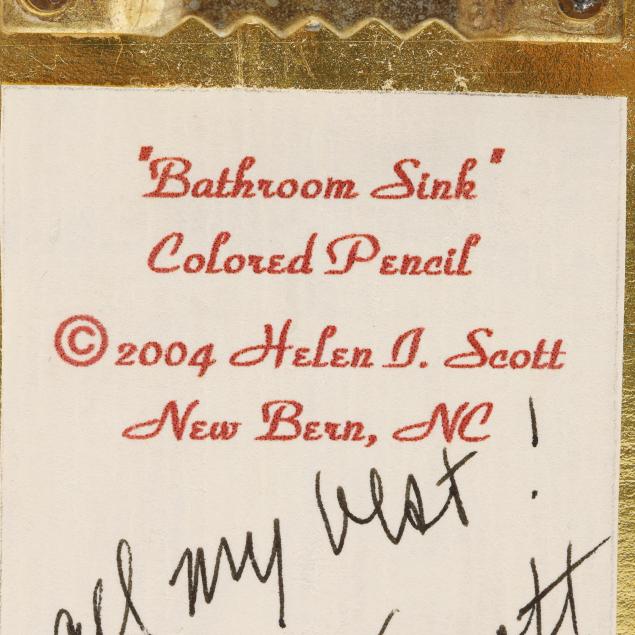 "Bathroom Sink"
Colored Pencil
©2004 Helen I. Scott
New Bern, NC
All my best!